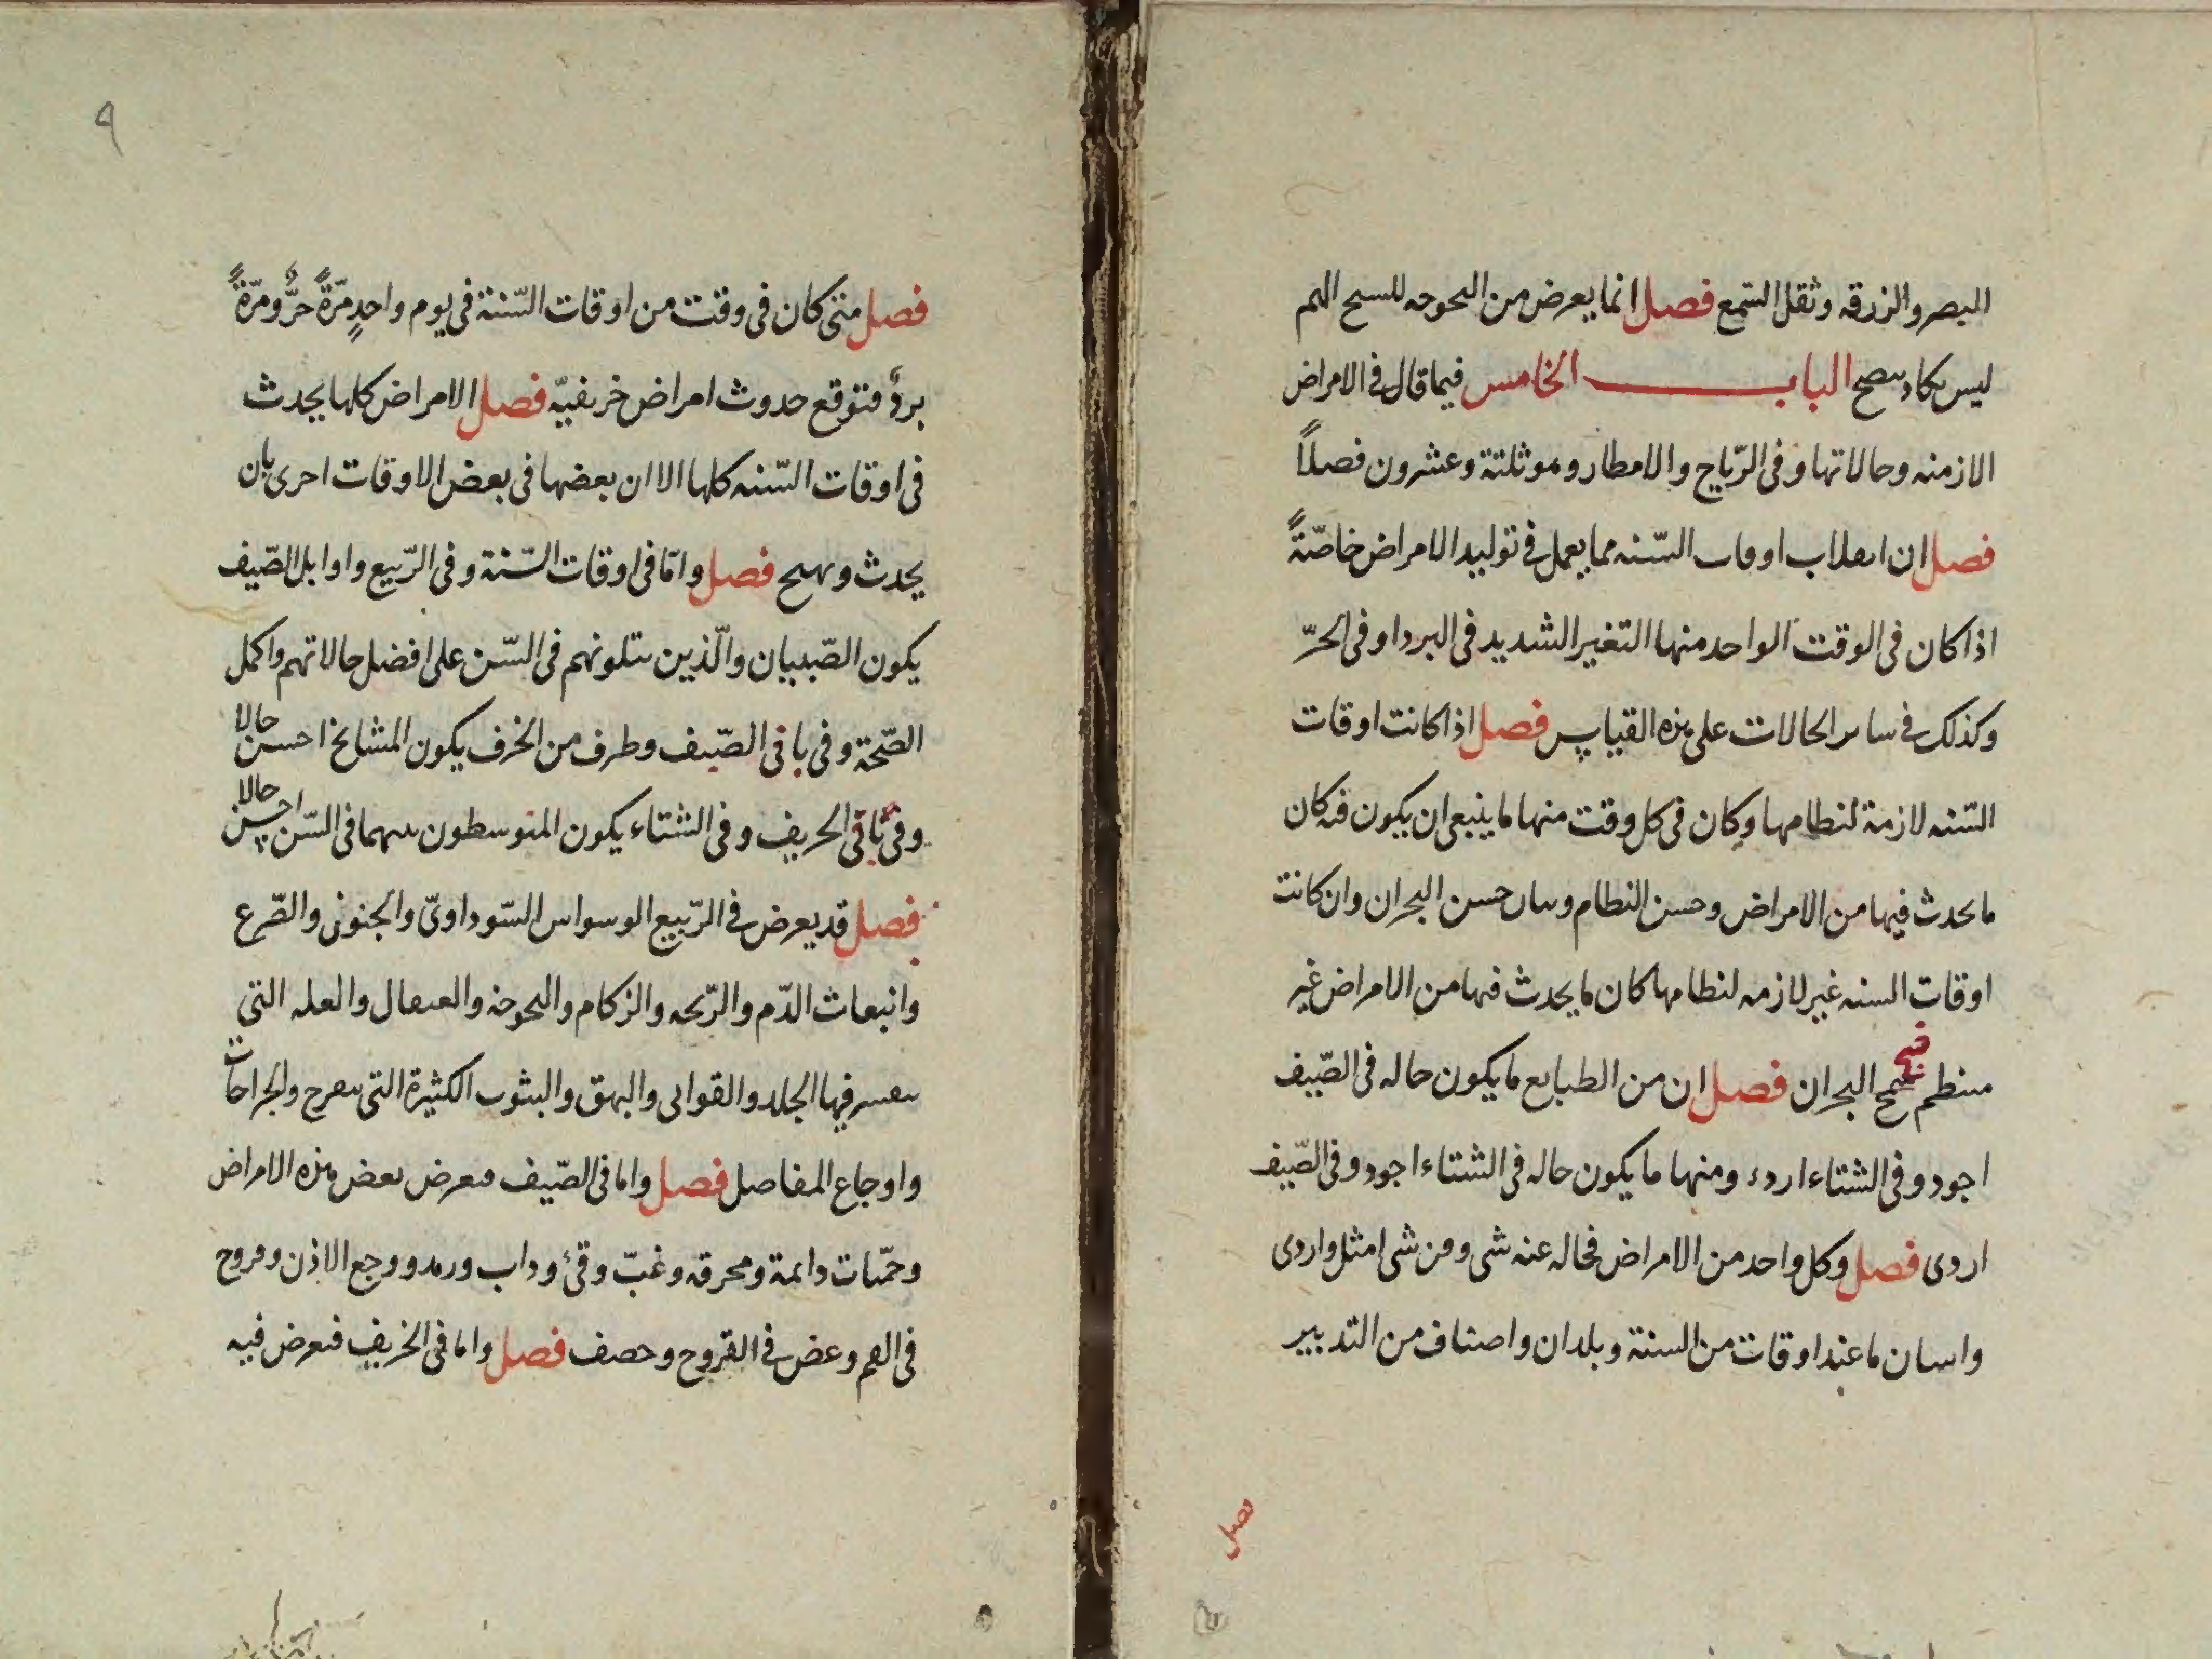 البصر والزرقه وثقل السّمع فصل انما يعرض من البحوحه للسيح الهم
ليس يكاد ينضج الباب الخامس فيما قال في الامراض
الازمنه وحالاتها وفى الرّياح والامطار وهو ثلثة وعشرون فصلاً
فصل ان انقلاب اوقات السّنه مما يعمل في توليد الامراض خاصّةً
اذا كان فى الوقت الواحد منها التغير الشديد فى البرد او فى الحرّ
وكذلك في ساير الحالات على هذه القياس فصل اذا كانت اوقات
السّنه لازمة لنظامها وكان فى كل وقت منها ما ينبغى ان يكون فيه كان
ما يحدث فيها من الامراض وحسن النظام وبيان حسن البحران وان كانت
اوقات السنه غير لازمه لنظامها كان ما يحدث فيها من الامراض غير
قبيح
منتظم سمج البحران فصل ان من الطبايع ما يكون حاله فى الصّيف
اجود وفى الشتاء ارده ومنها ما يكون حاله فى الشتاء اجود وفى الصّيف
اردى فصل وكل واحد من الامراض فحاله عند شى ومن شى امثل واردى
واسنان ما عند اوقات من السنة وبلدان واصناف من التدبير
فصل
٩
فصل متى كان فى وقت من اوقات السّنة فى يوم واحدٍ مرّةً حرٌّ ومرّةً
بردٌ فتوقع حدوث امراض خريفيّه فصل الامراض كلها يحدث
فى اوقات السّنه كلها الا ان بعضها فى بعض الاوقات احرى بان
يحدث ويهيج فصل وامّا فى اوقات السّنة وفى الرّبيع واوايل الصّيف
يكون الصّبيان والّذين يتلونهم فى السّن على افضل حالاتهم واكمل
الصّحّة وفى باقى الصّيف وطرف من الخرف يكون المشايخ احسن حالا
وفى باقى الخريف وفى الشتاء يكون المتوسطون بينهما فى السّن احسن حالا
فصل قد يعرض في الرّبيع الوسواس السّوداوىّ والجنون والصّرع
وانبعاث الدّم والذّبحه والزكام والبحوحة والسعال والعله التى
يتقشر فيها الجلد والقوابى والبهق والبثور الكثيرة التى يتقرح والجراحات
واوجاع المفاصل فصل واما فى الصّيف فيعرض بعض هذه الامراض
وحمّيات دايمة ومحرقه وغبّ وقئ وداب ورمد ووجع الاذن وقروح
فى الفم وعفن في القروح وحصف فصل واما فى الخريف فيعرض فيه